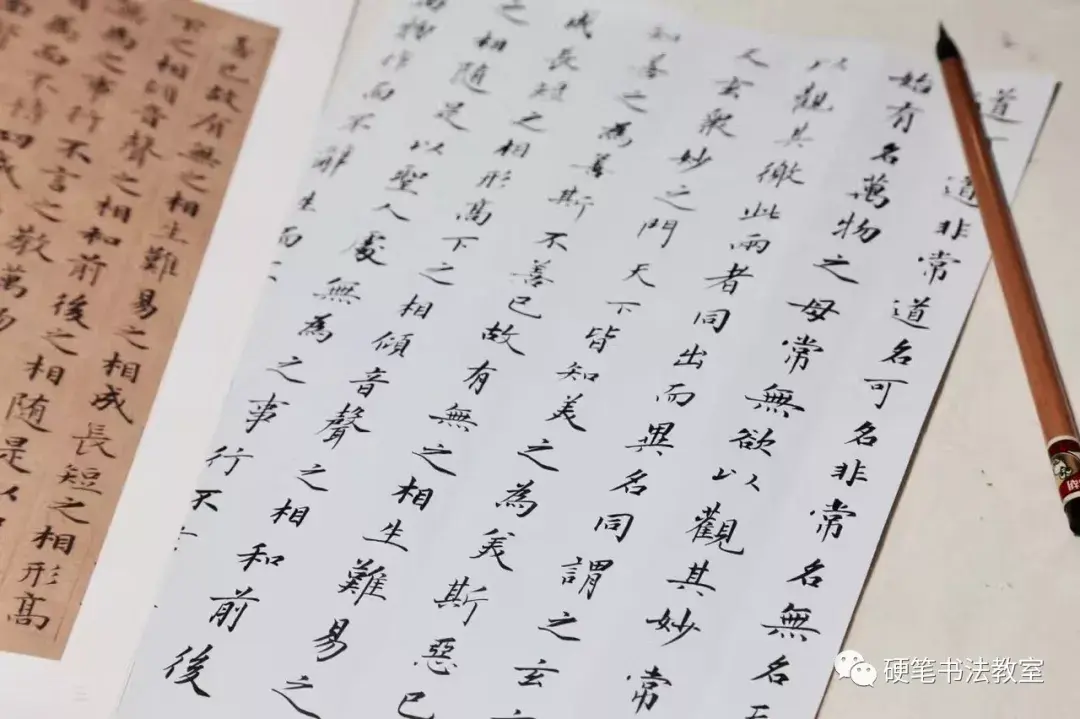 道道非常道名可名非常名無名
始有名萬物之母常無欲以觀其妙常
以觀其徼此兩者同出而異名同謂之玄
玄眾妙之門天下皆知美之為美斯惡已
知善之為善斯不善已故有無之相生難易之
成長短之相形高下之相傾音聲之相和前後
之相随是以聖人處無為之事行不
萬物作而不辭生而不
善已故有無之相生難易之相成長短之相形高
下之相傾音聲之相和前後之相随是以
無為之事行不言之教萬物
為而不恃功成
硬笔书法教室